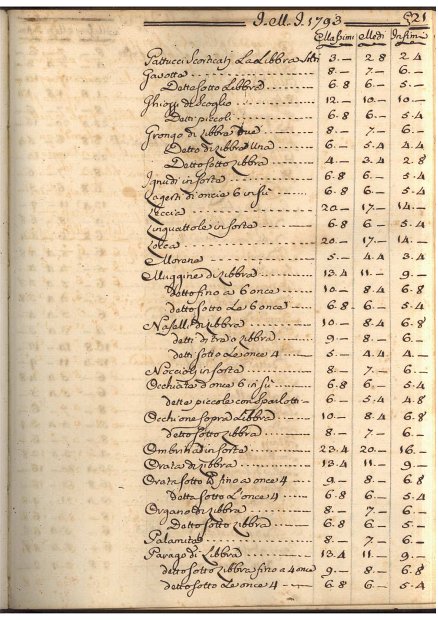 J. M. J. 1793 521
Massimi Medi Infimi
Pattucci Scorticatj La Libbra 3.— 2.8 2.4
Gavotte 8.— 7.— 6.—
Dette sotto Libbra 6.8 6.— 5.4
Ghiozzi di Scoglio 12.— 10.— 10.—
Detti piccoli 6.8 6.— 5.4
Grongo di Libbre due 8.— 7.— 6.—
Detto di Libbra una 6.— 5.4 4.4
Detto sotto Libbra 4.— 3.4 2.8
Ignudi in sorte 6.8 6.— 5.4
Lagerti di oncie 6 in sù 6.8 6.— 5.4
Leccia 20.— 17.— 14.—
Linguattole in sorte 6.8 6.— 5.4
20.— 17.— 14.—
Morena 5.— 4.4 3.4
Muggine di Libbra 13.4 11.— 9.—
detto fino a 6 once 10.— 8.4 6.8
detto sotto Le 6 once 6.8 6.— 5.4
Naselli di Libbra 10.— 8.4 6.8
detti di tre a Libbra 9.— 8.— 6.—
detti sotto Le once 4 5.— 4.4 4.—
Noccioli in sorte 8.— 7.— 6.—
Occhiata d'once 6 in sù 6.8 6.— 5.4
dette piccole con Sparlotti 6.— 5.4 4.8
Occhione sopra Libbra 10.— 8.4 6.8
detto sotto Libbra 8.— 7.— 6.—
Ombrina in sorte 23.4 20.— 16.—
Orata di Libbra 13.4 11.— 9.—
Orata sotto Lb fino a once 4 9.— 8.— 6.8
Detta sotto L'once 4 6.8 6.— 5.4
Organo di Libbra 8.— 7.— 6.—
Detto sotto Libbra 6.8 6.— 5.—
Palamita 8.— 7.— 6.—
Parago di Libbra 13.4 11.— 9.—
detto sotto Libbra fino a 4 once 9.— 8.— 6.8
detto sotto Le once 4 6.8 6.— 5.4